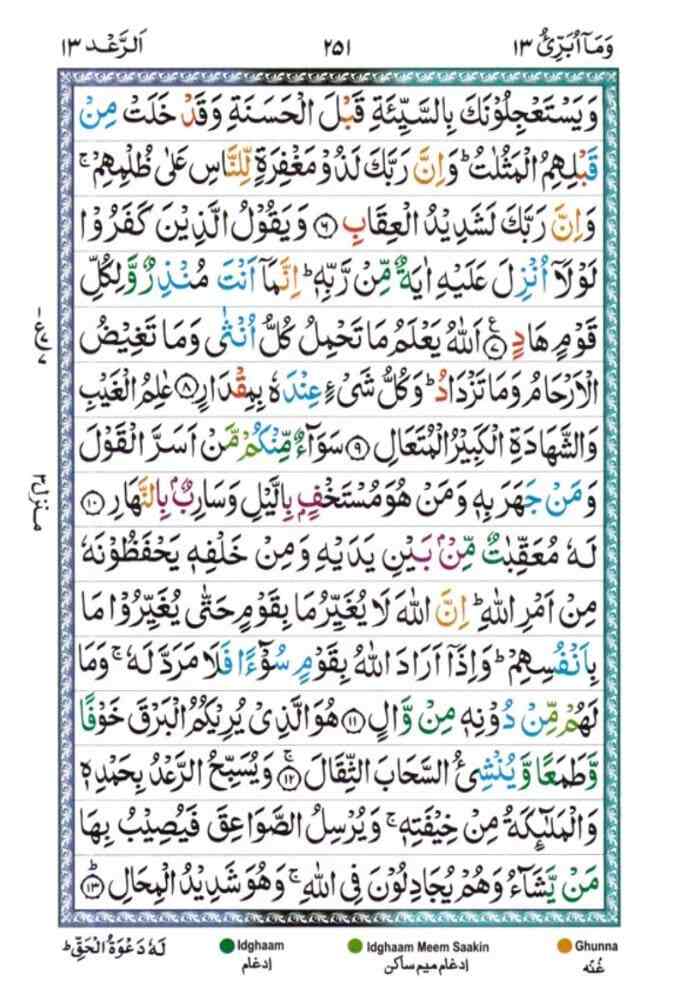 وَمَاۤ اُبَرِّئُ ۱۳
۲۵۱
اَلرَّعْد ۱۳
وَيَسْتَعْجِلُوْنَكَ بِالسَّيِّئَةِ قَبْلَ الْحَسَنَةِ وَقَدْ خَلَتْ مِنْ
قَبْلِهِمُ الْمَثُلٰتُ ؕ وَاِنَّ رَبَّكَ لَذُوْ مَغْفِرَةٍ لِّلنَّاسِ عَلٰى ظُلْمِهِمْ ۚ
وَاِنَّ رَبَّكَ لَشَدِيْدُ الْعِقَابِ ﴿۶﴾ وَيَقُوْلُ الَّذِيْنَ كَفَرُوْا
لَوْلَاۤ اُنْزِلَ عَلَيْهِ اٰيَةٌ مِّنْ رَّبِّهٖ ؕ اِنَّمَاۤ اَنْتَ مُنْذِرٌ وَّلِكُلِّ
قَوْمٍ هَادٍ ﴿۷﴾ ع اَللّٰهُ يَعْلَمُ مَا تَحْمِلُ كُلُّ اُنْثٰى وَمَا تَغِيْضُ
الْاَرْحَامُ وَمَا تَزْدَادُ ؕ وَكُلُّ شَىْءٍ عِنْدَهٗ بِمِقْدَارٍ ﴿۸﴾ عٰلِمُ الْغَيْبِ
وَالشَّهَادَةِ الْكَبِيْرُ الْمُتَعَالِ ﴿۹﴾ سَوَآءٌ مِّنْكُمْ مَّنْ اَسَرَّ الْقَوْلَ
وَمَنْ جَهَرَ بِهٖ وَمَنْ هُوَ مُسْتَخْفٍۭ بِالَّيْلِ وَسَارِبٌۢ بِالنَّهَارِ ﴿۱۰﴾
لَهٗ مُعَقِّبٰتٌ مِّنْۢ بَيْنِ يَدَيْهِ وَمِنْ خَلْفِهٖ يَحْفَظُوْنَهٗ
مِنْ اَمْرِ اللّٰهِ ؕ اِنَّ اللّٰهَ لَا يُغَيِّرُ مَا بِقَوْمٍ حَتّٰى يُغَيِّرُوْا مَا
بِاَنْفُسِهِمْ ؕ وَاِذَاۤ اَرَادَ اللّٰهُ بِقَوْمٍ سُوْٓءًا فَلَا مَرَدَّ لَهٗ ۚ وَمَا
لَهُمْ مِّنْ دُوْنِهٖ مِنْ وَّالٍ ﴿۱۱﴾ هُوَ الَّذِىْ يُرِيْكُمُ الْبَرْقَ خَوْفًا
وَّطَمَعًا وَّيُنْشِئُ السَّحَابَ الثِّقَالَ ﴿۱۲﴾ ۚ وَيُسَبِّحُ الرَّعْدُ بِحَمْدِهٖ
وَالْمَلٰٓئِكَةُ مِنْ خِيْفَتِهٖ ۚ وَيُرْسِلُ الصَّوَاعِقَ فَيُصِيْبُ بِهَا
مَنْ يَّشَآءُ وَهُمْ يُجَادِلُوْنَ فِى اللّٰهِ ۚ وَهُوَ شَدِيْدُ الْمِحَالِ ﴿۱۳﴾ ؕ
منزل ۳
لَهٗ دَعْوَةُ الْحَقِّ ؕ
Idghaam
إدغام
Idghaam Meem Saakin
إدغام ميم ساكن
Ghunna
غُنّه